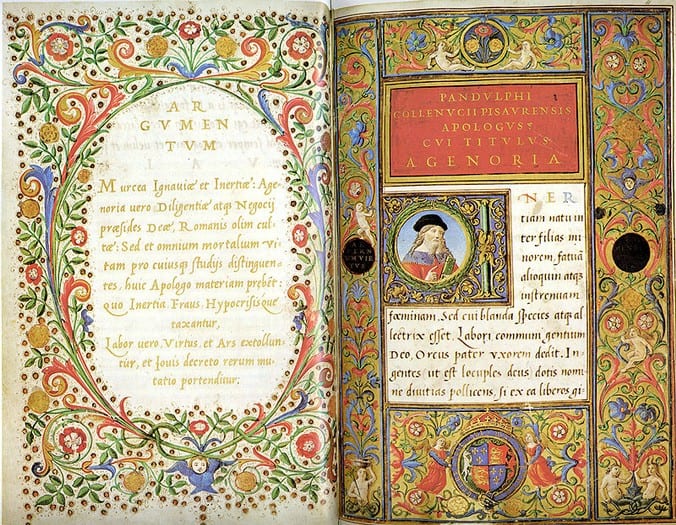 AR
GVMEN
TVM
Murcea Ignauiæ et Inertiæ: Age
noria vero Diligentiæ atqȝ Negocij
præsides Deæ, Romanis olim cul
tæ: Sed et omnium mortalium vi
tam pro cuiusqȝ studijs distinguen
tes, huic Apologo materiam prebēt:
quo Inertia Fraus, Hypocrisisque
taxantur,
Labor vero, Virtus, et Ars extollun
tūr, et Iouis decreto rerum mu
tatio portenditur.
PANDVLPHI
COLLENVCII PISAVRENSIS
APOLOGVS
CVI TITVLVS
AGENORIA
INER
tiam natu in
ter filias mi
norem, fatuā
alioquin atqȝ
instremiam
fœminam, Sed cui blanda species atqȝ al
lectrix esset, Labori communi gentium
Deo, Orcus pater vxorem dedit. In
gentes ut est locuples deus dotis nomi
ne diuitias pollicens, si ex ea liberos gi